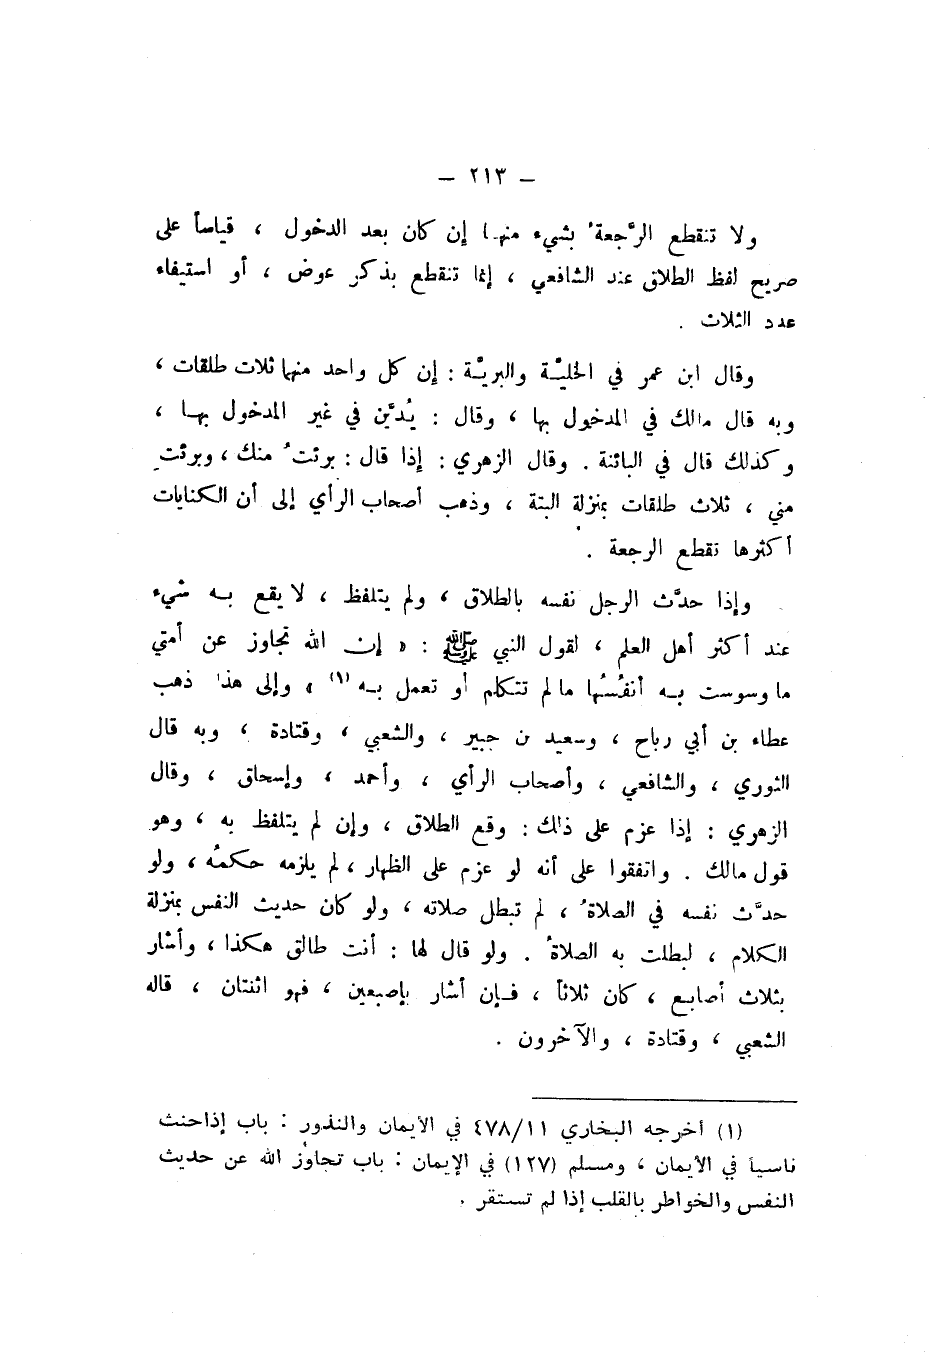 – ٢١٣ –
ولا تنقطع الرَّجعةُ بشيء منها إن كان بعد الدخول ، قياساً على
صريح لفظ الطلاق عند الشافعي ، إنما تنقطع بذكر عوض ، أو استيفاء
عدد الثلاث .
وقال ابن عمر في الخليَّة والبريَّة : إن كل واحد منها ثلاث طلقات ،
وبه قال مالك في المدخول بها ، وقال : يُدَيَّن في غير المدخول بها ،
وكذلك قال في البائنة . وقال الزهري : إذا قال : برئتُ منك ، وبرئتِ
مني ، ثلاث طلقات بمنزلة البتة ، وذهب أصحاب الرأي إلى أن الكنايات
أكثرها تقطع الرجعة .
وإذا حدَّث الرجل نفسه بالطلاق ، ولم يتلفظ ، لا يقع به شيء
عند أكثر أهل العلم ، لقول النبي ﷺ : « إن الله تجاوز عن أمتي
ما وسوست به أنفُسُها ما لم تتكلم أو تعمل به (١) » وإلى هذا ذهب
عطاء بن أبي رباح ، وسعيد بن جبير ، والشعبي ، وقتادة ، وبه قال
الثوري ، والشافعي ، وأصحاب الرأي ، وأحمد ، وإسحاق ، وقال
الزهري : إذا عزم على ذلك : وقع الطلاق ، وإن لم يتلفظ به ، وهو
قول مالك . واتفقوا على أنه لو عزم على الظهار ، لم يلزمه حكمُه ، ولو
حدَّث نفسه في الصلاة ، لم تبطل صلاته ، ولو كان حديث النفس بمنزلة
الكلام ، لبطلت به الصلاةُ . ولو قال لها : أنت طالق هكذا ، وأشار
بثلاث أصابع ، كان ثلاثاً ، فإن أشار بإصبعين ، فهو اثنتان ، قاله
الشعبي ، وقتادة ، والآخرون .
(١) أخرجه البخاري ٤٧٨/١١ في الأيمان والنذور : باب إذا حنث
ناسياً في الأيمان ، ومسلم (١٢٧) في الإيمان : باب تجاوُز الله عن حديث
النفس والخواطر بالقلب إذا لم تستقر .